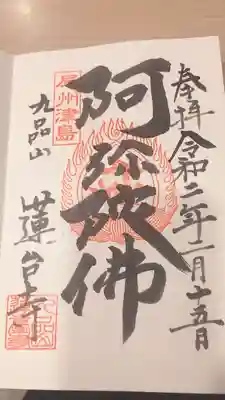 奉拝 令和二年二月十五日
阿弥陀佛
尾州津島
九品山
蓮台寺